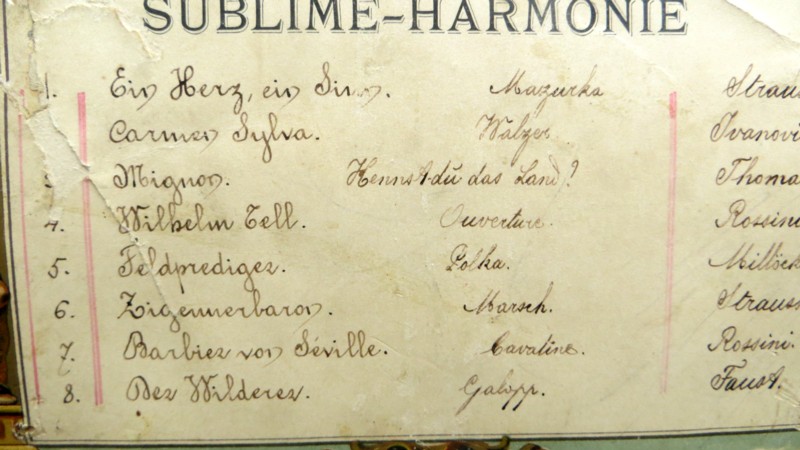 SUBLIME-HARMONIE
1. Ein Herz, ein Sinn. Mazurka Strauss
Carmen Sylva. Walzer Ivanovi
3. Mignon. Kennst du das Land? Thoma
4. Wilhelm Tell. Ouverture. Rossini
5. Feldprediger. Polka. Millöck
6. Zigeunerbaron. Marsch. Strauss
7. Barbier von Séville. Cavatine. Rossini.
8. Der Wilderer. Galopp. Faust.